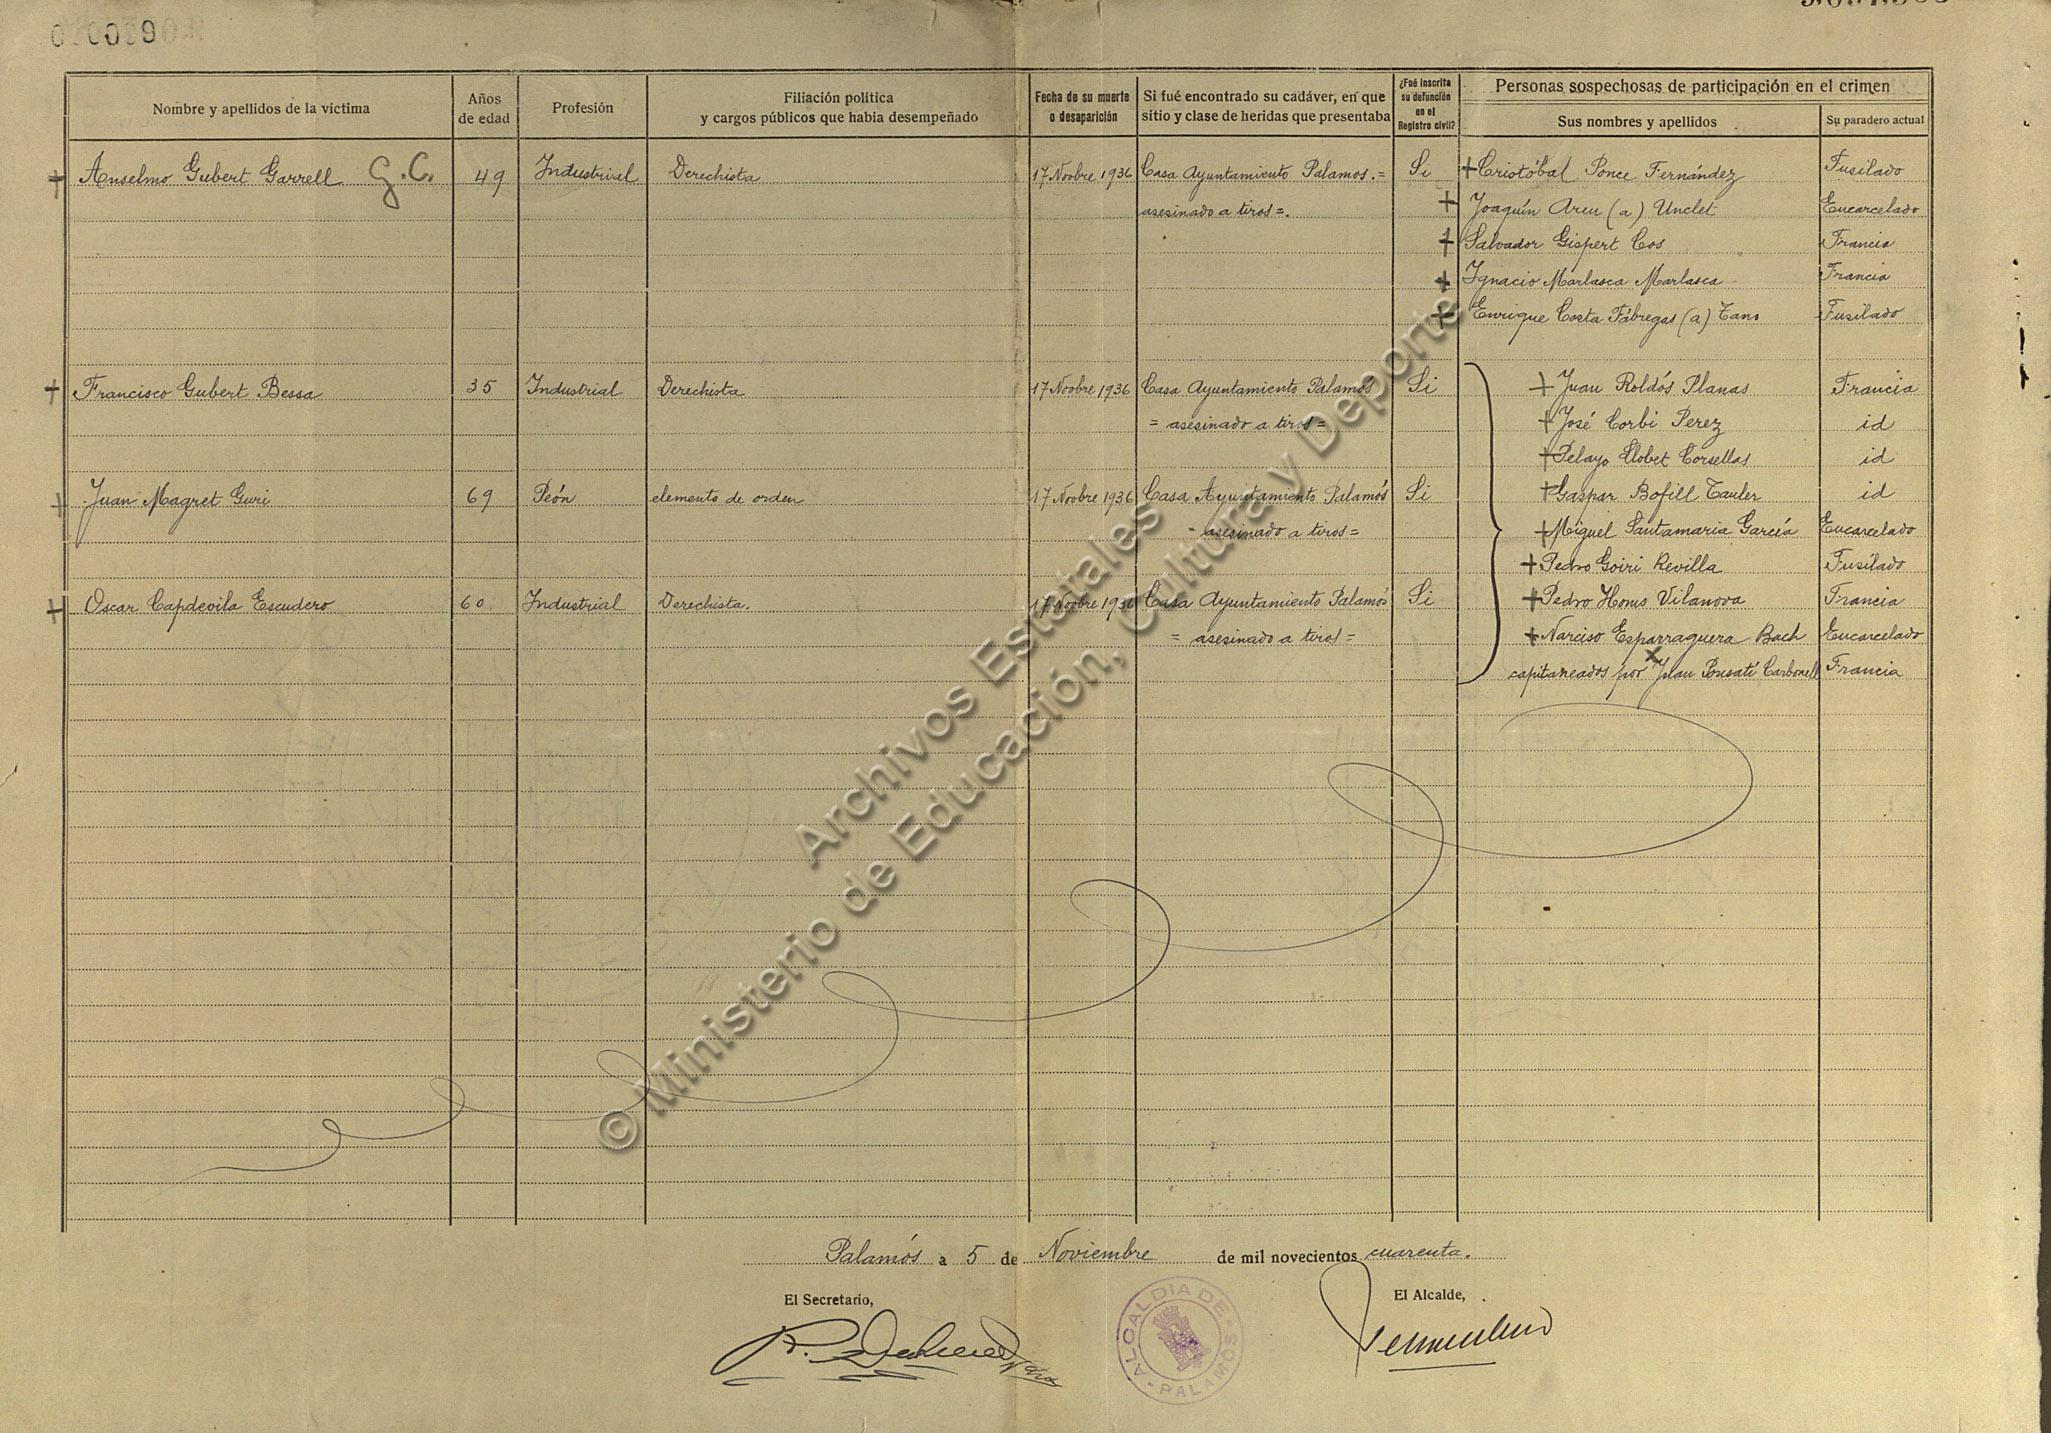 Nombre y apellidos de la víctima
Años de edad
Profesión
Filiación política
y cargos públicos que había desempeñado
Fecha de su muerte
o desaparición
Si fué encontrado su cadáver, en que
sitio y clase de heridas que presentaba
¿Fué inscrita
su defunción
en el
Registro civil?
Personas sospechosas de participación en el crimen
Sus nombres y apellidos
Su paradero actual
+ Anselmo Gubert Garrell G.C. 49 Industrial Derechista 17 Novbre 1936 Casa Ayuntamiento Palamos.= Si + Cristóbal Ponce Fernández Fusilado
asesinado a tiros=. + Joaquín Areu (a) Unclet Encarcelado
+ Salvador Gispert Cos Francia
+ Ignacio Marlasca Marlasca Francia
+ Enrique Costa Fábregas (a) Tano Fusilado
+ Francisco Gubert Bessa 35 Industrial Derechista 17 Novbre 1936 Casa Ayuntamiento Palamós Si + Juan Roldós Planas Francia
= asesinado a tiros = + José Corbi Perez id
+ Pelayo Llobet Corsellas id
+ Juan Magret Guri 69 Peón elemento de orden 17 Novbre 1936 Casa Ayuntamiento Palamós Si + Gaspar Bofill Tauler id
- asesinado a tiros = + Miguel Santamaria García Encarcelado
+ Pedro Goiri Revilla Fusilado
+ Oscar Capdevila Escudero 60 Industrial Derechista. 17 Novbre 1936 Casa Ayuntamiento Palamós Si + Pedro Homs Vilanova Francia
= asesinado a tiros = + Narciso Esparraguera Bach Encarcelado
capitaneados por x Juan Pousatí Carbonell Francia
Palamós a 5 de Noviembre de mil novecientos cuarenta.
El Secretario,
El Alcalde,
ALCALDIA DE
PALAMÓS
© Ministerio de Educación, Cultura y Deporte
Archivos Estatales